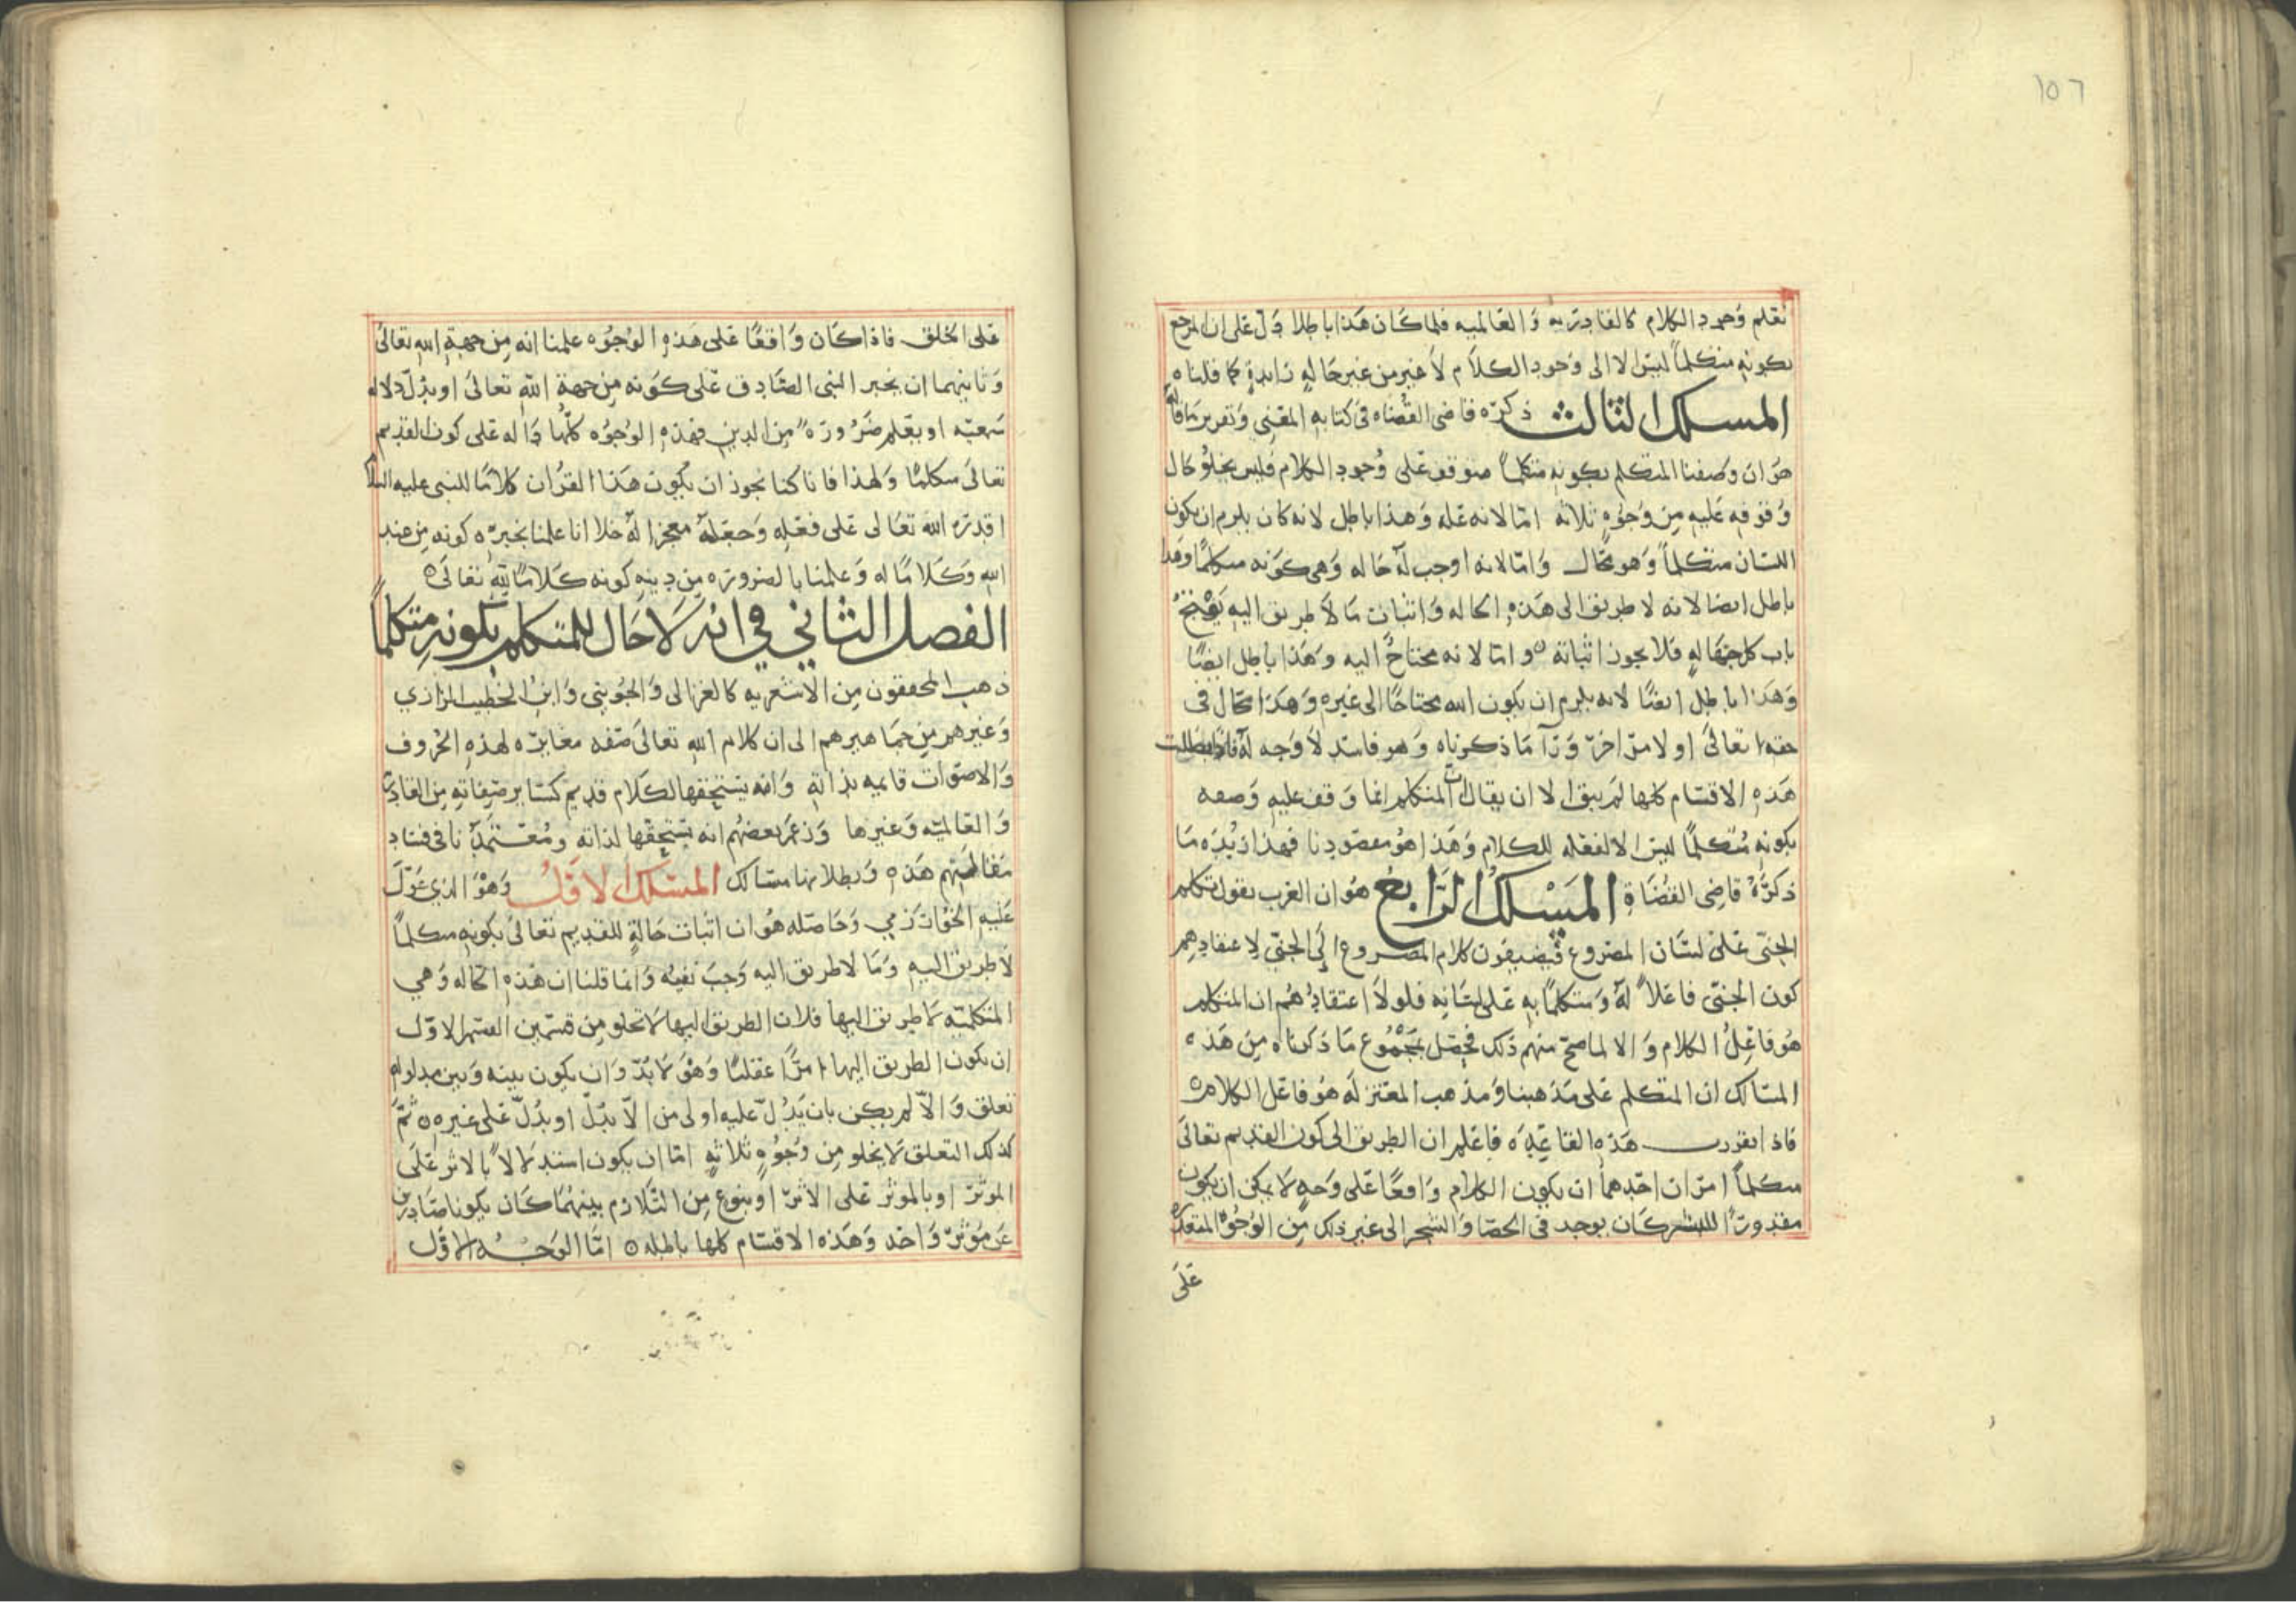 ١٥٦
نعلم وجود الكلام كالقادرية والعالمية فلما كان هذا باطلا دل على ان المرجع
بكونه متكلماً ليس الا الى وجود الكلام لا غير من غير حالة زايدة كما قلناه
المسلك الثالث ذكره قاضى القضاه في كتابه المغنى وتقرير ما قاله
هو ان وصفنا المتكلم بكونه متكلماً متوقف على وجود الكلام فليس يخلو حال
وقوفه عليه من وجوه ثلاثه امّا لانه علة وهذا باطل لانه كان يلزم ان يكون
اللسان متكلماً وهو محال وامّا لانه اوجب له حاله وهى كونه متكلمًا وهذا
باطل ايضا لانه لا طريق الى هذه الحاله واثبات ما لا طريق اليه يفتح
باب كل جهالة فلا يجوز اثباته ٥ وامّا لانه محتاجٌ اليه وهذا باطل ايضًا
وهذا باطل ايضًا لانه يلزم ان يكون الله محتاجًا الى غيره وهذا محال فى
حقه تعالى او لامر اخر ورآ ما ذكرناه وهو فاسد لا وجه له فاذا بطلت
هذه الاقسام كلها لم يبق الا ان يقال ان المتكلم انما وقف عليه وصفه
بكونه متكلمًا ليس الا لفعله للكلام وهذا هو مقصودنا فهذا زبدة ما
ذكرهُ قاضى القضاة المَسْلكُ الرّابعُ هو ان العرب يقول تكلم
الجنى على لسان المصروع فيضيفون كلام المصروع الى الجنى لاعتقادهم
كون الجنى فاعلاً لهُ ومتكلمًا به على لسانه فلولا اعتقادهم ان المتكلم
هو فاعل الكلام والا لما صح منهم ذلك فحصل بمجموع ما ذكرناه من هذه
المسالك ان المتكلم على مذهبنا ومذهب المعتزله هو فاعل الكلام ٥
فاذا تقررت هذه القاعده فاعلم ان الطريق الى كون القديم تعالى
متكلماً امران احدهما ان يكون الكلام واقعًا على وجه لا يمكن ان يكون
مقدورًا للبشر كان يوجد فى الحصا والشجر الى غير ذلك من الوجوه المتعذره
على
على الخلق فاذا كان واقعًا على هذه الوجوه علمنا انه من جهة الله تعالى
وثانيهما ان يخبر النبى الصادق على كونه من جهة الله تعالى او يدل دلاله
سمعيه او يعلم ضرورة من الدين فهذه الوجوه كلها داله على كون القديم
تعالى متكلمًا ولهذا فانا كنا نجوز ان يكون هذا القران كلامًا للنبى عليه السلام
اقدره الله تعالى على فعله وجعله معجزا له خلا انا علمنا بخبره كونه من عند
الله وكلامًا له وعلمنا بالضروره من دينه كونه كلامًا لله تعالى ٥
الفصل الثاني في انه لا حال للمتكلم بكونه متكلماً
ذهب المحققون من الاشعريه كالغزالى والجوينى وابن الخطيب الرازي
وغيرهم من جماهيرهم الى ان كلام الله تعالى صفه مغايره لهذه الحروف
والاصوات قايمه بذاته وانه يستحقها الكلام قديم كساير صفاته من القادريه
والعالميه وغيرها وزعم بعضهم انه يستحقها لذاته ومعتمدنا في فساد
مقالتهم هذه وبطلانها مسالك المسلك الاول وهو الذي عول
عليه الخوارزمي وحاصله هو ان اثبات حالة للقديم تعالى بكونه متكلماً
لا طريق اليه وما لا طريق اليه وجب نفيه وانما قلنا ان هذه الحاله وهي
المتكلميه لا طريق اليها فلان الطريق اليها لا تخلو من قسمين القسم الاول
ان يكون الطريق اليها امرًا عقليًا وهو لا بد وان يكون بينه وبين مدلوله
تعلق والا لم يكن بان يدل عليه اولى من الا يدل او يدل على غيره ٥ ثم
كذلك التعلق لا يخلو من وجوه ثلاثه امّا ان يكون استدلالاً بالاثر على
الموثر او بالموثر على الاثر او بنوع من التلازم بينهما كان يكونا صادرين
عن موثر واحد وهذه الاقسام كلها باطله ٥ امّا الوجه الاول